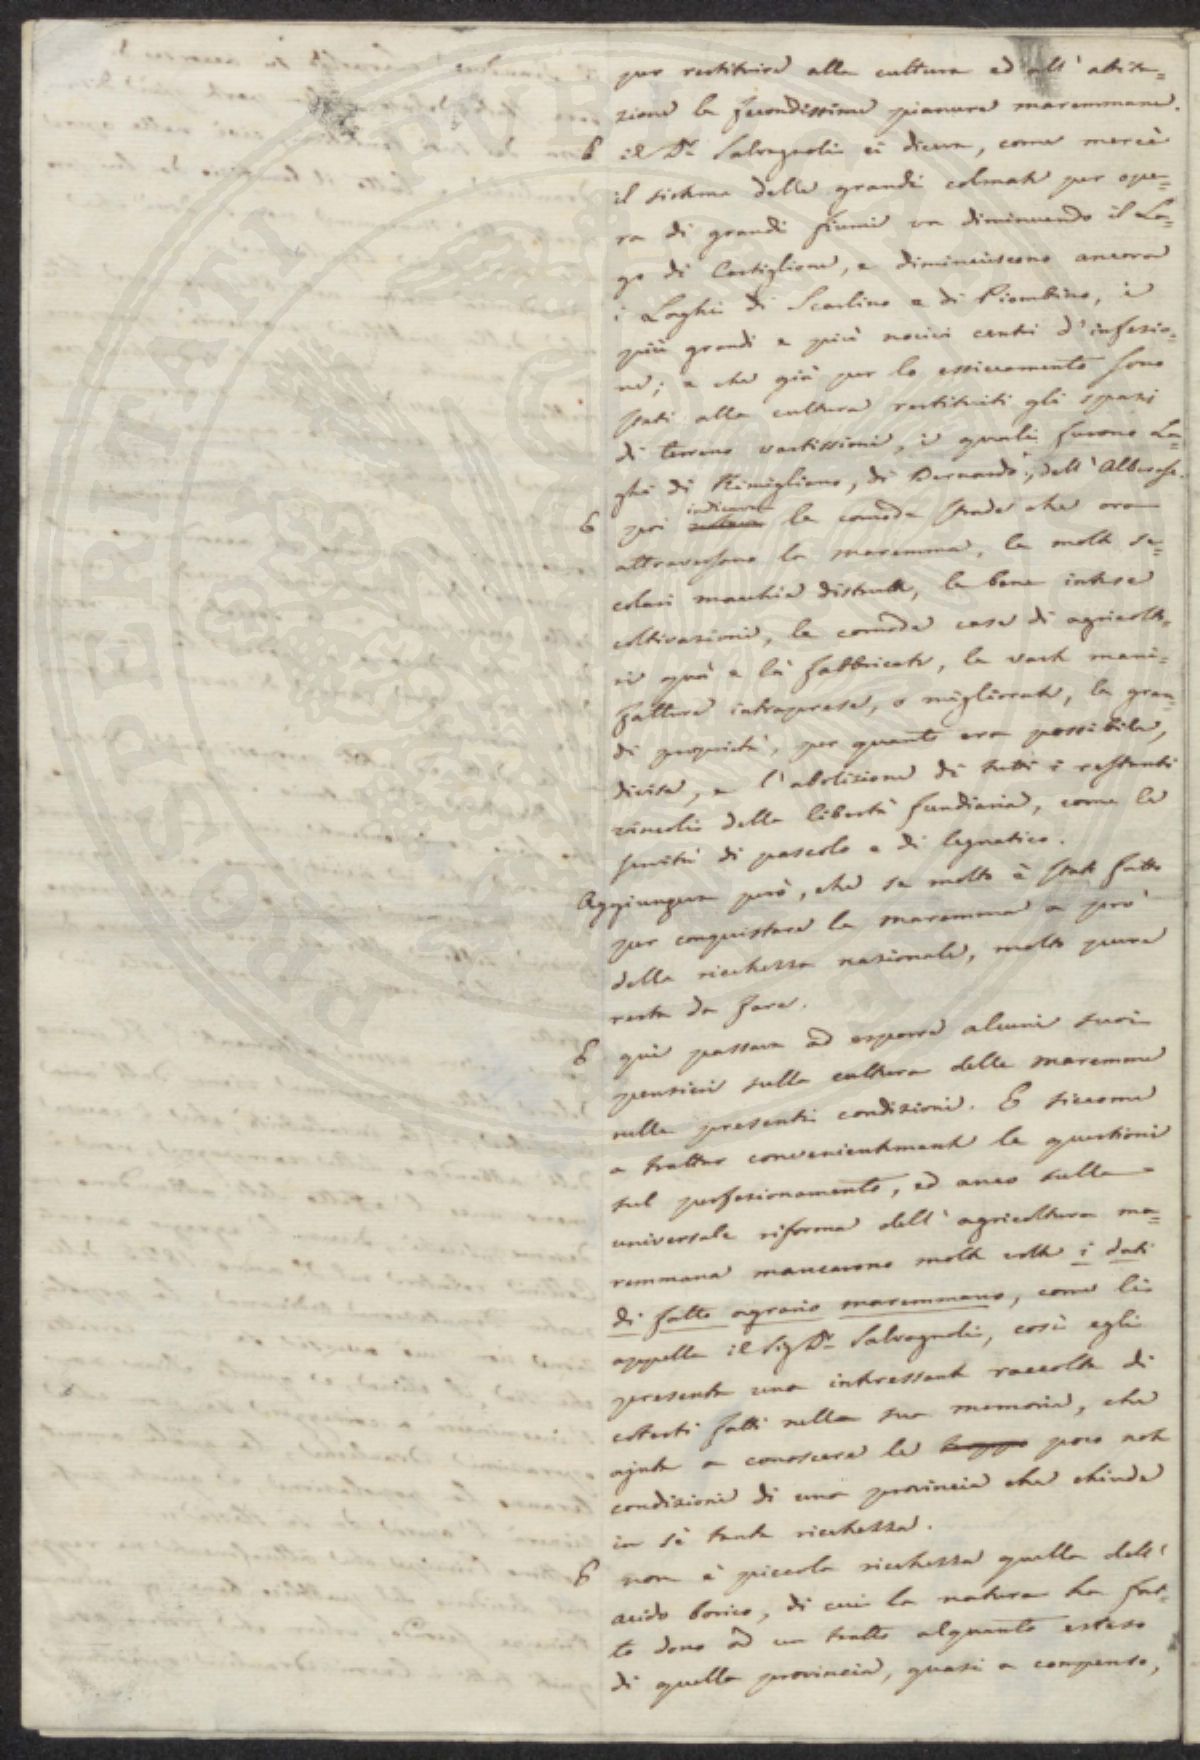 per restituire alla cultura ed all' abita=
zione le fecondissime pianure maremmane.
E il Dr. Salvagnoli ci diceva, come mercè
il sistema delle grandi colmate per ope=
ra di grandi fiumi va diminuendo il La=
go di Castiglione, e diminuiscono ancora
i Laghi di Scarlino e di Piombino, i
più grandi e più nocivi centri d' infezio=
ne; e che già per lo essiccamento sono
stati alla cultura restituiti gli spazi
di terreno vastissimi, i quali furono La=
ghi di Rimigliano, di Bernardo, dell' Alberese.
E poi indicava le comode strade che ora
attraversano la maremma, le molte se=
colari macchie distrutte, le bene intese
coltivazioni, le comode case di agricolto=
ri quà e là fabbricate, le vaste mani=
fatture intraprese, o migliorate, le gran=
di proprietà, per quanto era possibile,
divise, e l' abolizione di tutti i restanti
vincoli della libertà fundiaria, come le
servitù di pascolo e di legnatico.
Aggiungeva però, che se molto è stato fatto
per conquistare la maremma a prò
della ricchezza nazionale, molto pure
resta da fare.
E quì passava ad esporre alcuni suoi
pensieri sulla cultura delle maremme
nelle presenti condizioni. E siccome
a trattar convenientemente le questioni
sul perfezionamento, ed anco sulla
universale riforma dell' agricoltura ma=
remmana mancavano molte volte i dati
di fatto agrario maremmano, come li
appella il Sig. Dr. Salvagnoli, così egli
presenta una interessante raccolta di
cotesti fatti nella sua memoria, che
ajuta a conoscere le troppo poco note
condizioni di una provincia che chiude
in sè tanta ricchezza.
E non è piccola ricchezza quella dell'
acido borico, di cui la natura ha fat=
to dono ad un tratto alquanto esteso
di quella provincia, quasi a compenso,